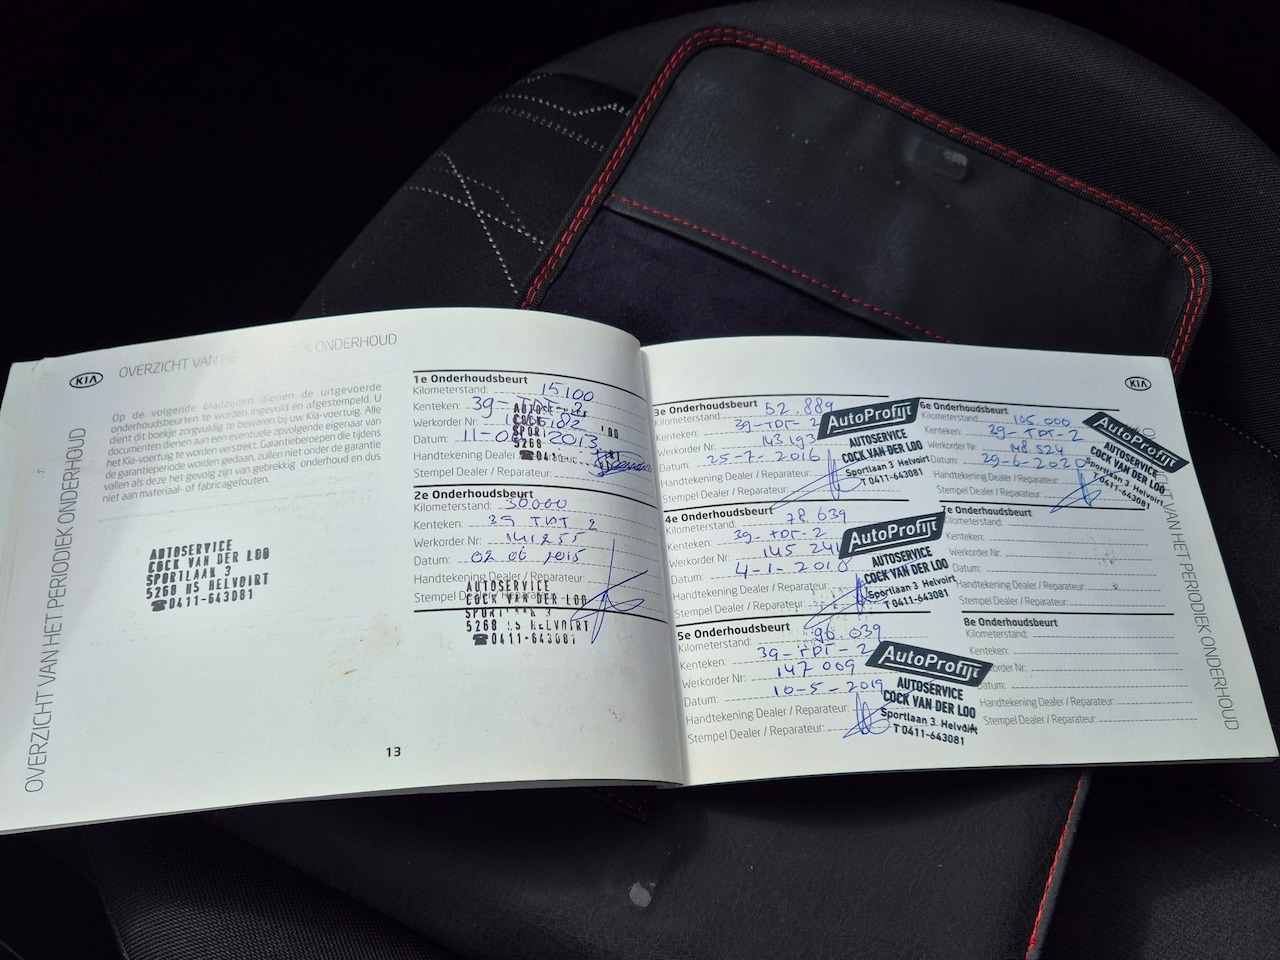 KIA
OVERZICHT VAN HET PERIODIEK ONDERHOUD
OVERZICHT VAN HET PERIODIEK ONDERHOUD
Op de volgende bladzijden dienen de uitgevoerde
onderhoudsbeurten te worden ingevuld en afgestempeld. U
dient dit boekje zorgvuldig te bewaren bij uw Kia-voertuig. Alle
documenten dienen aan een eventuele opvolgende eigenaar van
het Kia-voertuig te worden verstrekt. Garantieberoepen die tijdens
de garantieperiode worden gedaan, zullen niet onder de garantie
vallen als deze het gevolg zijn van gebrekkig onderhoud en dus
niet aan materiaal- of fabricagefouten.
AUTOSERVICE
COCK VAN DER LOO
SPORTLAAN 3
5268 HS HELVOIRT
☎0411-643081
1e Onderhoudsbeurt
Kilometerstand: 15100
Kenteken: 39-TDT-2
Werkorder Nr:
Datum: 11- 2013
Handtekening Dealer
Stempel Dealer / Reparateur:
AUTOSERVICE
COCK
SPORT
5268
☎0411
2e Onderhoudsbeurt
Kilometerstand: 30.000
Kenteken: 39 TDT 2
Werkorder Nr: 141255
Datum: 02 06 2015
Handtekening Dealer / Reparateur:
Stempel Dealer / Reparateur:
AUTOSERVICE
COCK VAN DER LOO
SPORTLAAN 3
5268 HS HELVOIRT
☎0411-643081
13
3e Onderhoudsbeurt
Kilometerstand: 52.889
Kenteken: 39-TDT-2
Werkorder Nr: 143193
Datum: 25-7-2016
Handtekening Dealer / Reparateur:
Stempel Dealer / Reparateur:
AutoProfijt
AUTOSERVICE
COCK VAN DER LOO
Sportlaan 3 Helvoirt
T 0411-643081
4e Onderhoudsbeurt
Kilometerstand: 78.639
Kenteken: 39-TDT-2
Werkorder Nr: 145 241
Datum: 4-1-2018
Handtekening Dealer / Reparateur:
Stempel Dealer / Reparateur:
AutoProfijt
AUTOSERVICE
COCK VAN DER LOO
Sportlaan 3 Helvoirt
T 0411-643081
5e Onderhoudsbeurt
Kilometerstand: 96.039
Kenteken: 39-TDT-2
Werkorder Nr: 147 009
Datum: 10-5-2019
Handtekening Dealer / Reparateur:
Stempel Dealer / Reparateur:
AutoProfijt
AUTOSERVICE
COCK VAN DER LOO
Sportlaan 3 Helvoirt
T 0411-643081
KIA
6e Onderhoudsbeurt
Kilometerstand: 105.000
Kenteken: 39-TDT-2
Werkorder Nr: 148 524
Datum: 29-6-2020
Handtekening Dealer / Reparateur:
Stempel Dealer / Reparateur:
AutoProfijt
AUTOSERVICE
COCK VAN DER LOO
Sportlaan 3 Helvoirt
T 0411-643081
7e Onderhoudsbeurt
Kilometerstand:
Kenteken:
Werkorder Nr:
Datum:
Handtekening Dealer / Reparateur:
Stempel Dealer / Reparateur:
8e Onderhoudsbeurt
Kilometerstand:
Kenteken:
order Nr:
Datum:
Handtekening Dealer / Reparateur:
Stempel Dealer / Reparateur:
VAN HET PERIODIEK ONDERHOUD